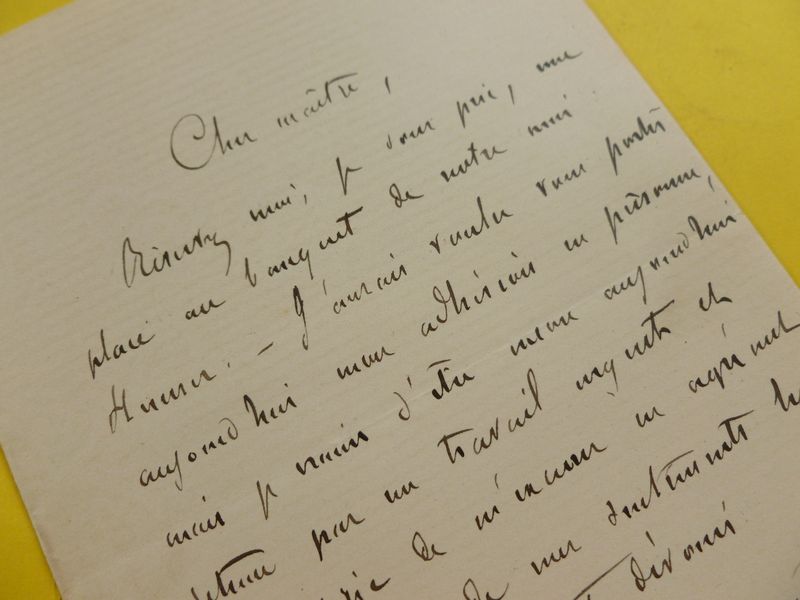 Cher maître,
Réservez moi, je vous prie, une
place au banquet de notre ami
J'aurais voulu vous porter
aujourd'hui mon adhésion en personne,
mais je crains d'être encore aujourd'hui
par un travail urgent et
de m'excuser en agréant
de mes sentiments
dévoués